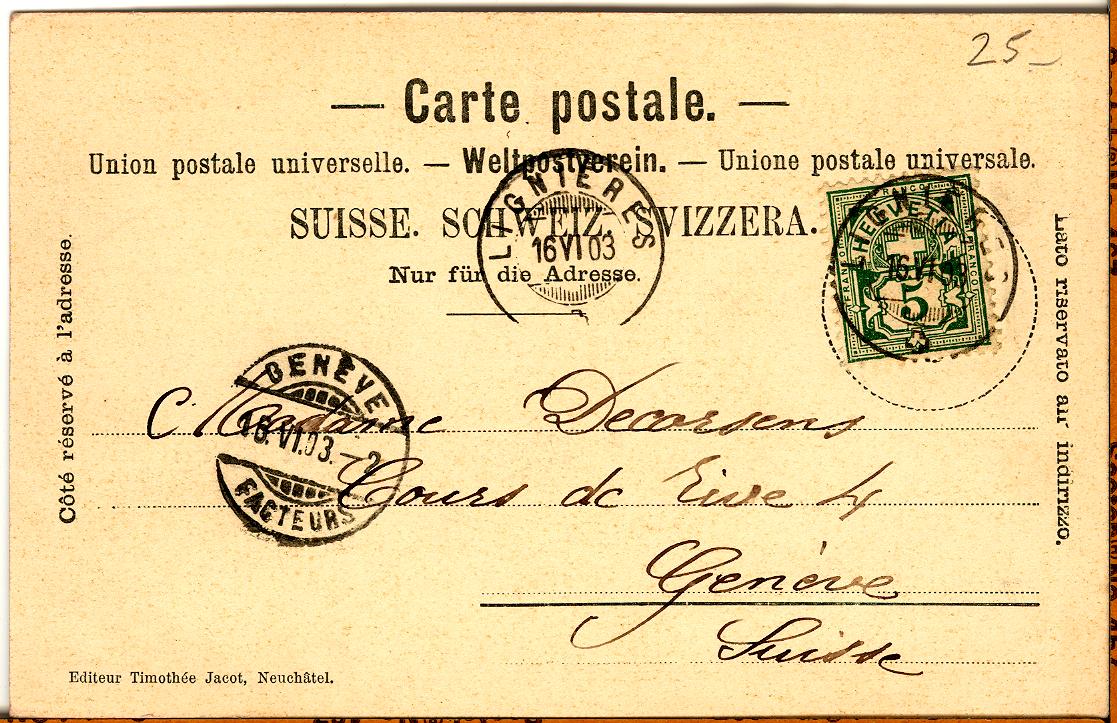 25_
— Carte postale. —
Union postale universelle. — Weltpostverein. — Unione postale universale.
SUISSE. SCHWEIZ. SVIZZERA.
Nur für die Adresse.
LIGNIERES
16 VI 03
FRANCO
HELVETIA
FRANCO
FRANCO
5
LIGNIERES
16 VI 03
Côté réservé à l'adresse.
Lato riservato all' indirizzo.
GENÈVE
16.VI.03.–2
FACTEURS
Madame Decorsens
Cours de Rive 4
Genève
Suisse
Editeur Timothée Jacot, Neuchâtel.